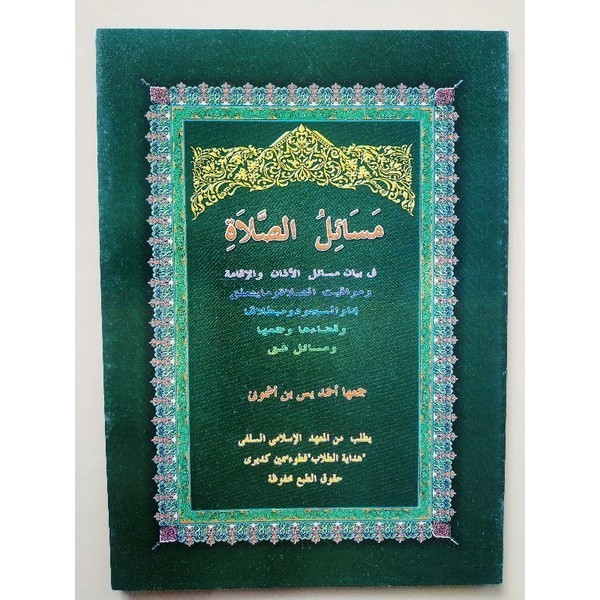 مَسَائِلُ الصَّلَاةِ
فى بيان مسائل الأذان والإقامة
ومواقيت الصلاة ومايتعلق
بها والسجود ومبطلاتها
وقضاءها وجمعها
ومسائل شتى
جمعها أحمد يس بن أسموني
يطلب من المعهد الإسلامى السلفى
"هداية الطلاب" فطوء سمبن كديرى
حقوق الطبع محفوظة